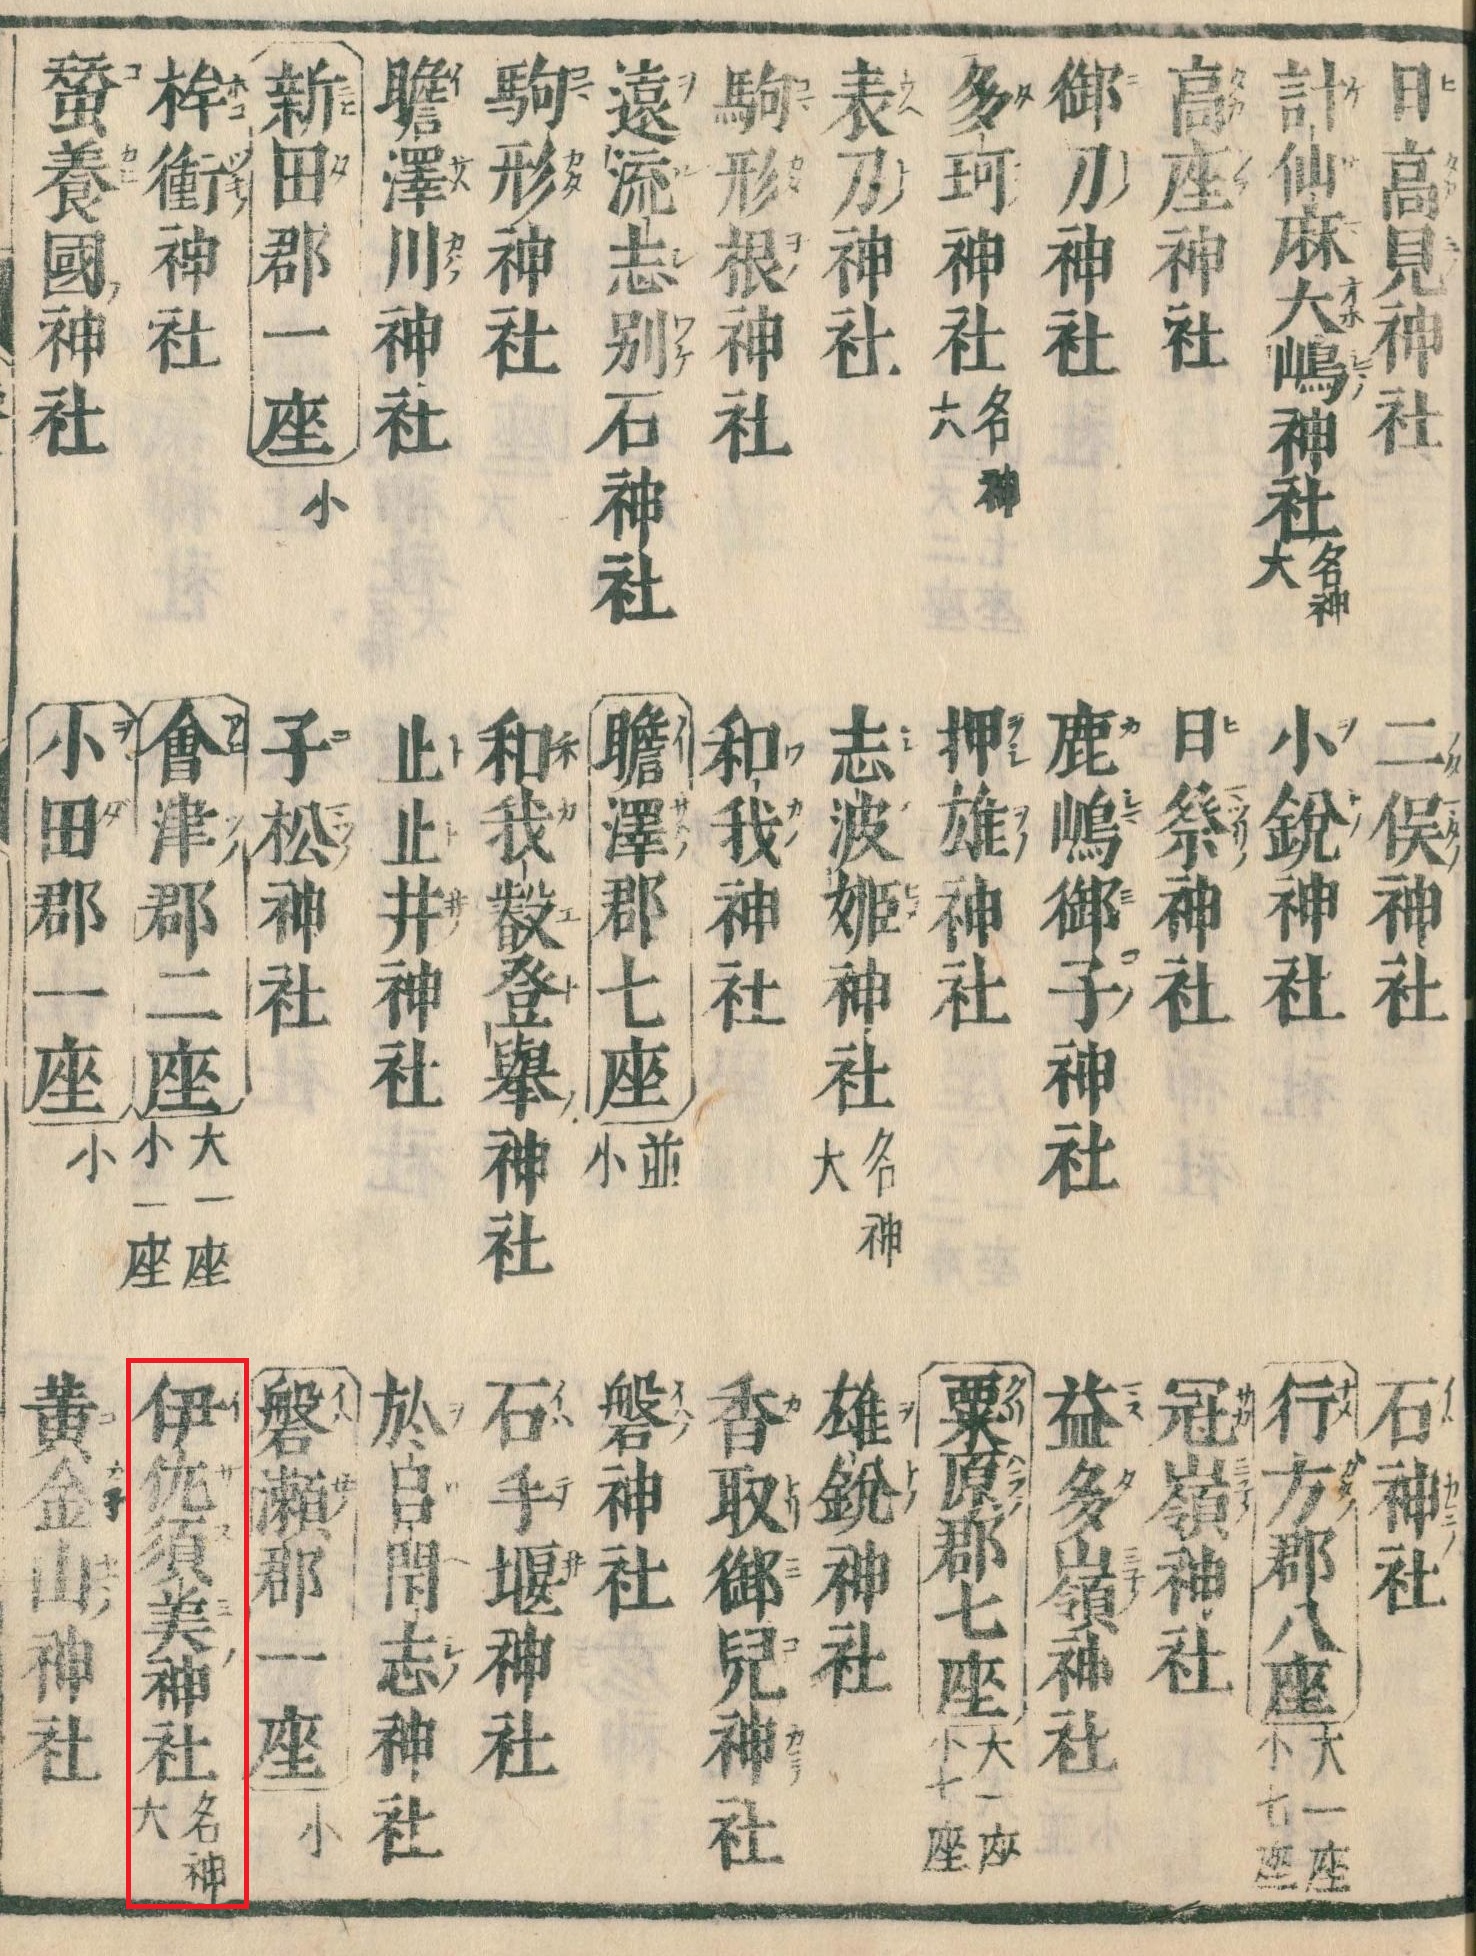 日高見神社 二俣神社 石神社
計仙麻大嶋神社名神大 小銳神社 行方郡八座大一座小七座
高座神社 日祭神社 冠嶺神社
御刀神社 鹿嶋御子神社 益多嶺神社
多珂神社名神大 押雄神社 栗原郡七座大一座小七座
表刀神社 志波姫神社名神大 雄銳神社
駒形根神社 和我神社 香取御兒神社
遠流志別石神社 膽澤郡七座並小 磐神社
駒形神社 和我叡登擧神社 石手堰神社
膽澤川神社 止止井神社 於呂閇志神社
新田郡一座小 子松神社 磐瀬郡一座小
桙衝神社 會津郡二座大一座小一座 伊佐須美神社名神大
蚕養國神社 小田郡一座小 黄金山神社